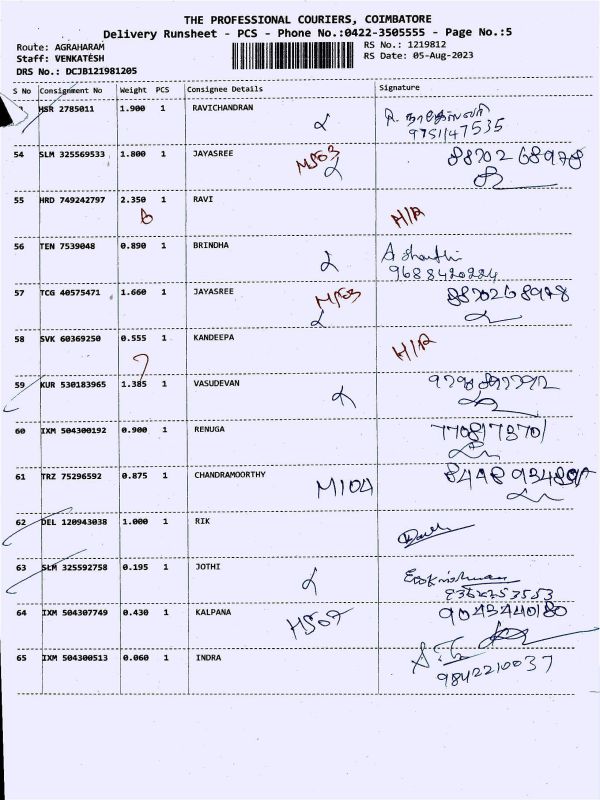 THE PROFESSIONAL COURIERS, COIMBATORE
Delivery Runsheet - PCS - Phone No.:0422-3505555 - Page No.:5
Route: AGRAHARAM RS No.: 1219812
Staff: VENKATESH RS Date: 05-Aug-2023
DRS No.: DCJB121981205
S No Consignment No Weight PCS Consignee Details Signature
MSR 2785011 1.900 1 RAVICHANDRAN
9751147535
54 SLM 325569533 1.800 1 JAYASREE M503 8870268978
55 HRD 749242797 2.350 1 RAVI
H/R
56 TEN 7539048 0.890 1 BRINDHA
9688420224
57 TCG 40575471 1.660 1 JAYASREE M503 8870268978
58 SVK 60369250 0.555 1 KANDEEPA
H/R
59 KUR 530183965 1.385 1 VASUDEVAN
60 IXM 504300192 0.900 1 RENUGA 7708173701
61 TRZ 75296592 0.875 1 CHANDRAMOORTHY
M104
62 DEL 120943038 1.000 1 RIK
63 SLM 325592758 0.195 1 JOTHI
64 IXM 504307749 0.430 1 KALPANA 9043440180
65 IXM 504300513 0.060 1 INDRA
9842210037